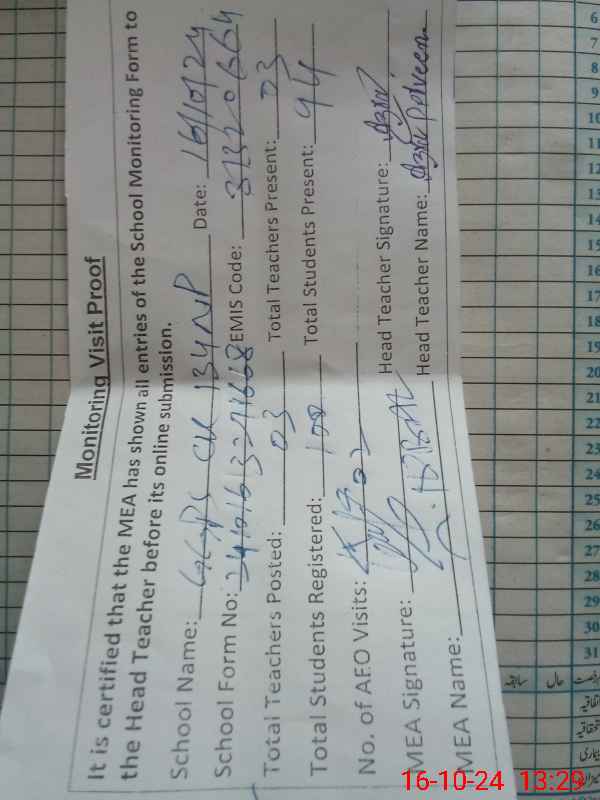 Monitoring Visit Proof
It is certified that the MEA has shown all entries of the School Monitoring Form to
the Head Teacher before its online submission.
School Name: GGPS CH 134 NP Date: 16/10/24
School Form No: EMIS Code: 31320664
Total Teachers Posted: 03 Total Teachers Present: 03
Total Students Registered: 100 Total Students Present: 94
No. of AEO Visits: 02
MEA Signature: Head Teacher Signature:
MEA Name: Head Teacher Name: Azra Parveen
6
7
8
9
10
11
12
13
14
15
16
17
18
19
20
21
22
23
24
25
26
27
28
29
30
31
رخصت حال سابقہ
اتفاقیہ
بیماری
16-10-24 13:29